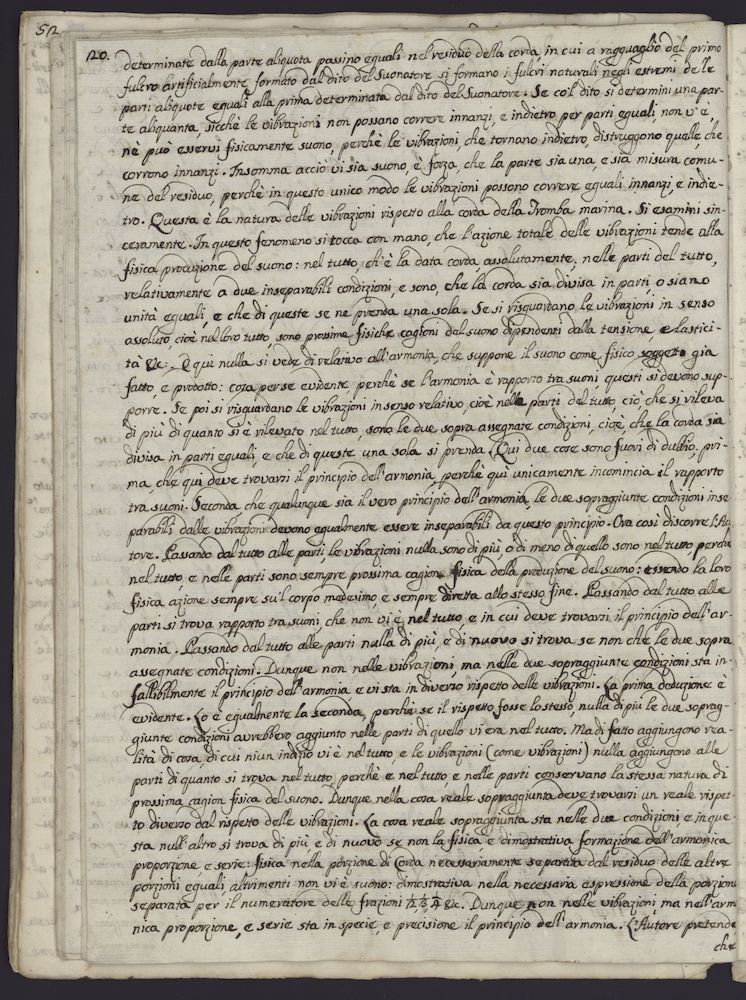 52
20.
determinate dalla parte aliquota passino eguali nel residuo della corda, in cui a ragguaglio del primo
fulcro artificialmente formato dal dito del Suonatore si formano i fulcri naturali negli estremi delle
parti aliquote eguali alla prima determinata dal dito del Suonatore. Se co'l dito si determini una par-
te aliquanta, sicchè le vibrazioni non possano correre innanzi, e indietro per parti eguali, non vi è,
nè può esservi fisicamente suono, perchè le vibrazioni, che tornano indietro, distruggono quelle, che
corrono innanzi. Insomma acciò vi sia suono, è forza, che la parte sia una, e sia misura comu-
ne del residuo, perchè in questo unico modo le vibrazioni possono correre eguali innanzi, e indie-
tro. Questa è la natura delle vibrazioni rispetto alla corda della Tromba marina. Si esamini sin-
ceramente. In questo fenomeno si tocca con mano, che l'azione totale delle vibrazioni tende alla
fisica produzione del suono: nel tutto, ch'è la data corda, assolutamente; nelle parti del tutto,
relativamente a due inseparabili condizioni, e sono, che la corda sia divisa in parti, o siano
unità eguali, e che di queste se ne prenda una sola. Se si risguardano le vibrazioni in senso
assoluto, cioè nel loro tutto, sono prossime fisiche cagioni del suono dipendenti dalla tensione, elastici-
tà &c. E qui nulla si vede di relativo all'armonia, che suppone il suono come fisico soggetto già
fatto e prodotto: cosa per se evidente, perchè se l'armonia è rapporto tra suoni, questi si devono sup-
porre. Se poi si risguardano le vibrazioni in senso relativo, cioè nelle parti del tutto, ciò, che si rileva
di più di quanto si è rilevato nel tutto, sono le due sopra assegnate condizioni, cioè, che la corda sia
divisa in parti eguali, e che di queste una sola si prenda. Qui due cose sono fuori di dubbio, pri-
ma, che qui deve trovarsi il principio dell'armonia, perchè qui unicamente incomincia il rapporto
tra suoni. Seconda che qualunque sia il vero principio dell'armonia, le due sopraggiunte condizioni inse
parabili dalle vibrazioni devono egualmente essere inseparabili da questo principio. Ora così discorre l'Au
tore. Passando dal tutto alle parti, le vibrazioni nulla sono di più, o di meno di quello sono nel tutto perchè
nel tutto, e nelle parti sono sempre prossima cagion fisica della produzione del suono: essendo la loro
fisica azione sempre su'l corpo medesimo, e sempre diretta allo stesso fine. Passando dal tutto alle
parti si trova rapporto tra suoni che non vi è nel tutto, e in cui deve trovarsi il principio dell'ar-
monia. Passando dal tutto alle parti nulla di più, e di nuovo si trova se non che le due sopra
assegnate condizioni. Dunque non nelle vibrazioni, ma nelle due sopraggiunte condizioni sta in-
fallibilmente il principio dell'armonia, e vi sta in diverso rispetto delle vibrazioni. La prima deduzione è
evidente. Lo è egualmente la seconda, perchè se il rispetto fosse lo stesso, nulla di più le due soprag-
giunte condizioni avrebbero aggiunto nelle parti di quello vi era nel tutto. Ma di fatto aggiungono rea-
lità di cosa, di cui niun indizio vi è nel tutto, e le vibrazioni (come vibrazioni) nulla aggiungono alle
parti di quanto si trova nel tutto, perchè e nel tutto, e nelle parti conservano la stessa natura di
prossima cagion fisica del suono. Dunque nella cosa reale sopraggiunta deve trovarsi un reale rispet-
to diverso dal rispetto delle vibrazioni. La cosa reale sopraggiunta sta nelle due condizioni, e in que-
sta null'altro si trova di più, e di nuovo se non la fisica, e dimostrativa formazione dell'armonica
proporzione, e serie: fisica nella porzione di Corda necessariamente separata dal residuo delle altre
porzioni eguali, altrimenti non vi è suono: dimostrativa nella necessaria espressione della porzione
separata per il numeratore delle frazioni 1/2, 1/3, 1/4 &c. Dunque non nelle vibrazioni ma nell'arm
nica proporzione, e serie sta in specie, e precisione il principio dell'armonia. L'Autore pretende
che